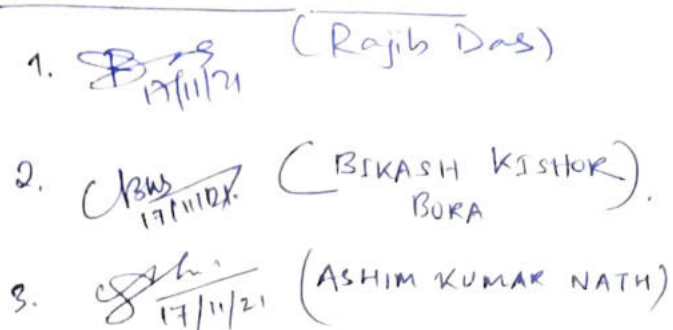 1. 17/11/21 (Rajib Das)
2. 17/11/21. (BIKASH KISHOR).
BORA
3. 17/11/21 (ASHIM KUMAR NATH)